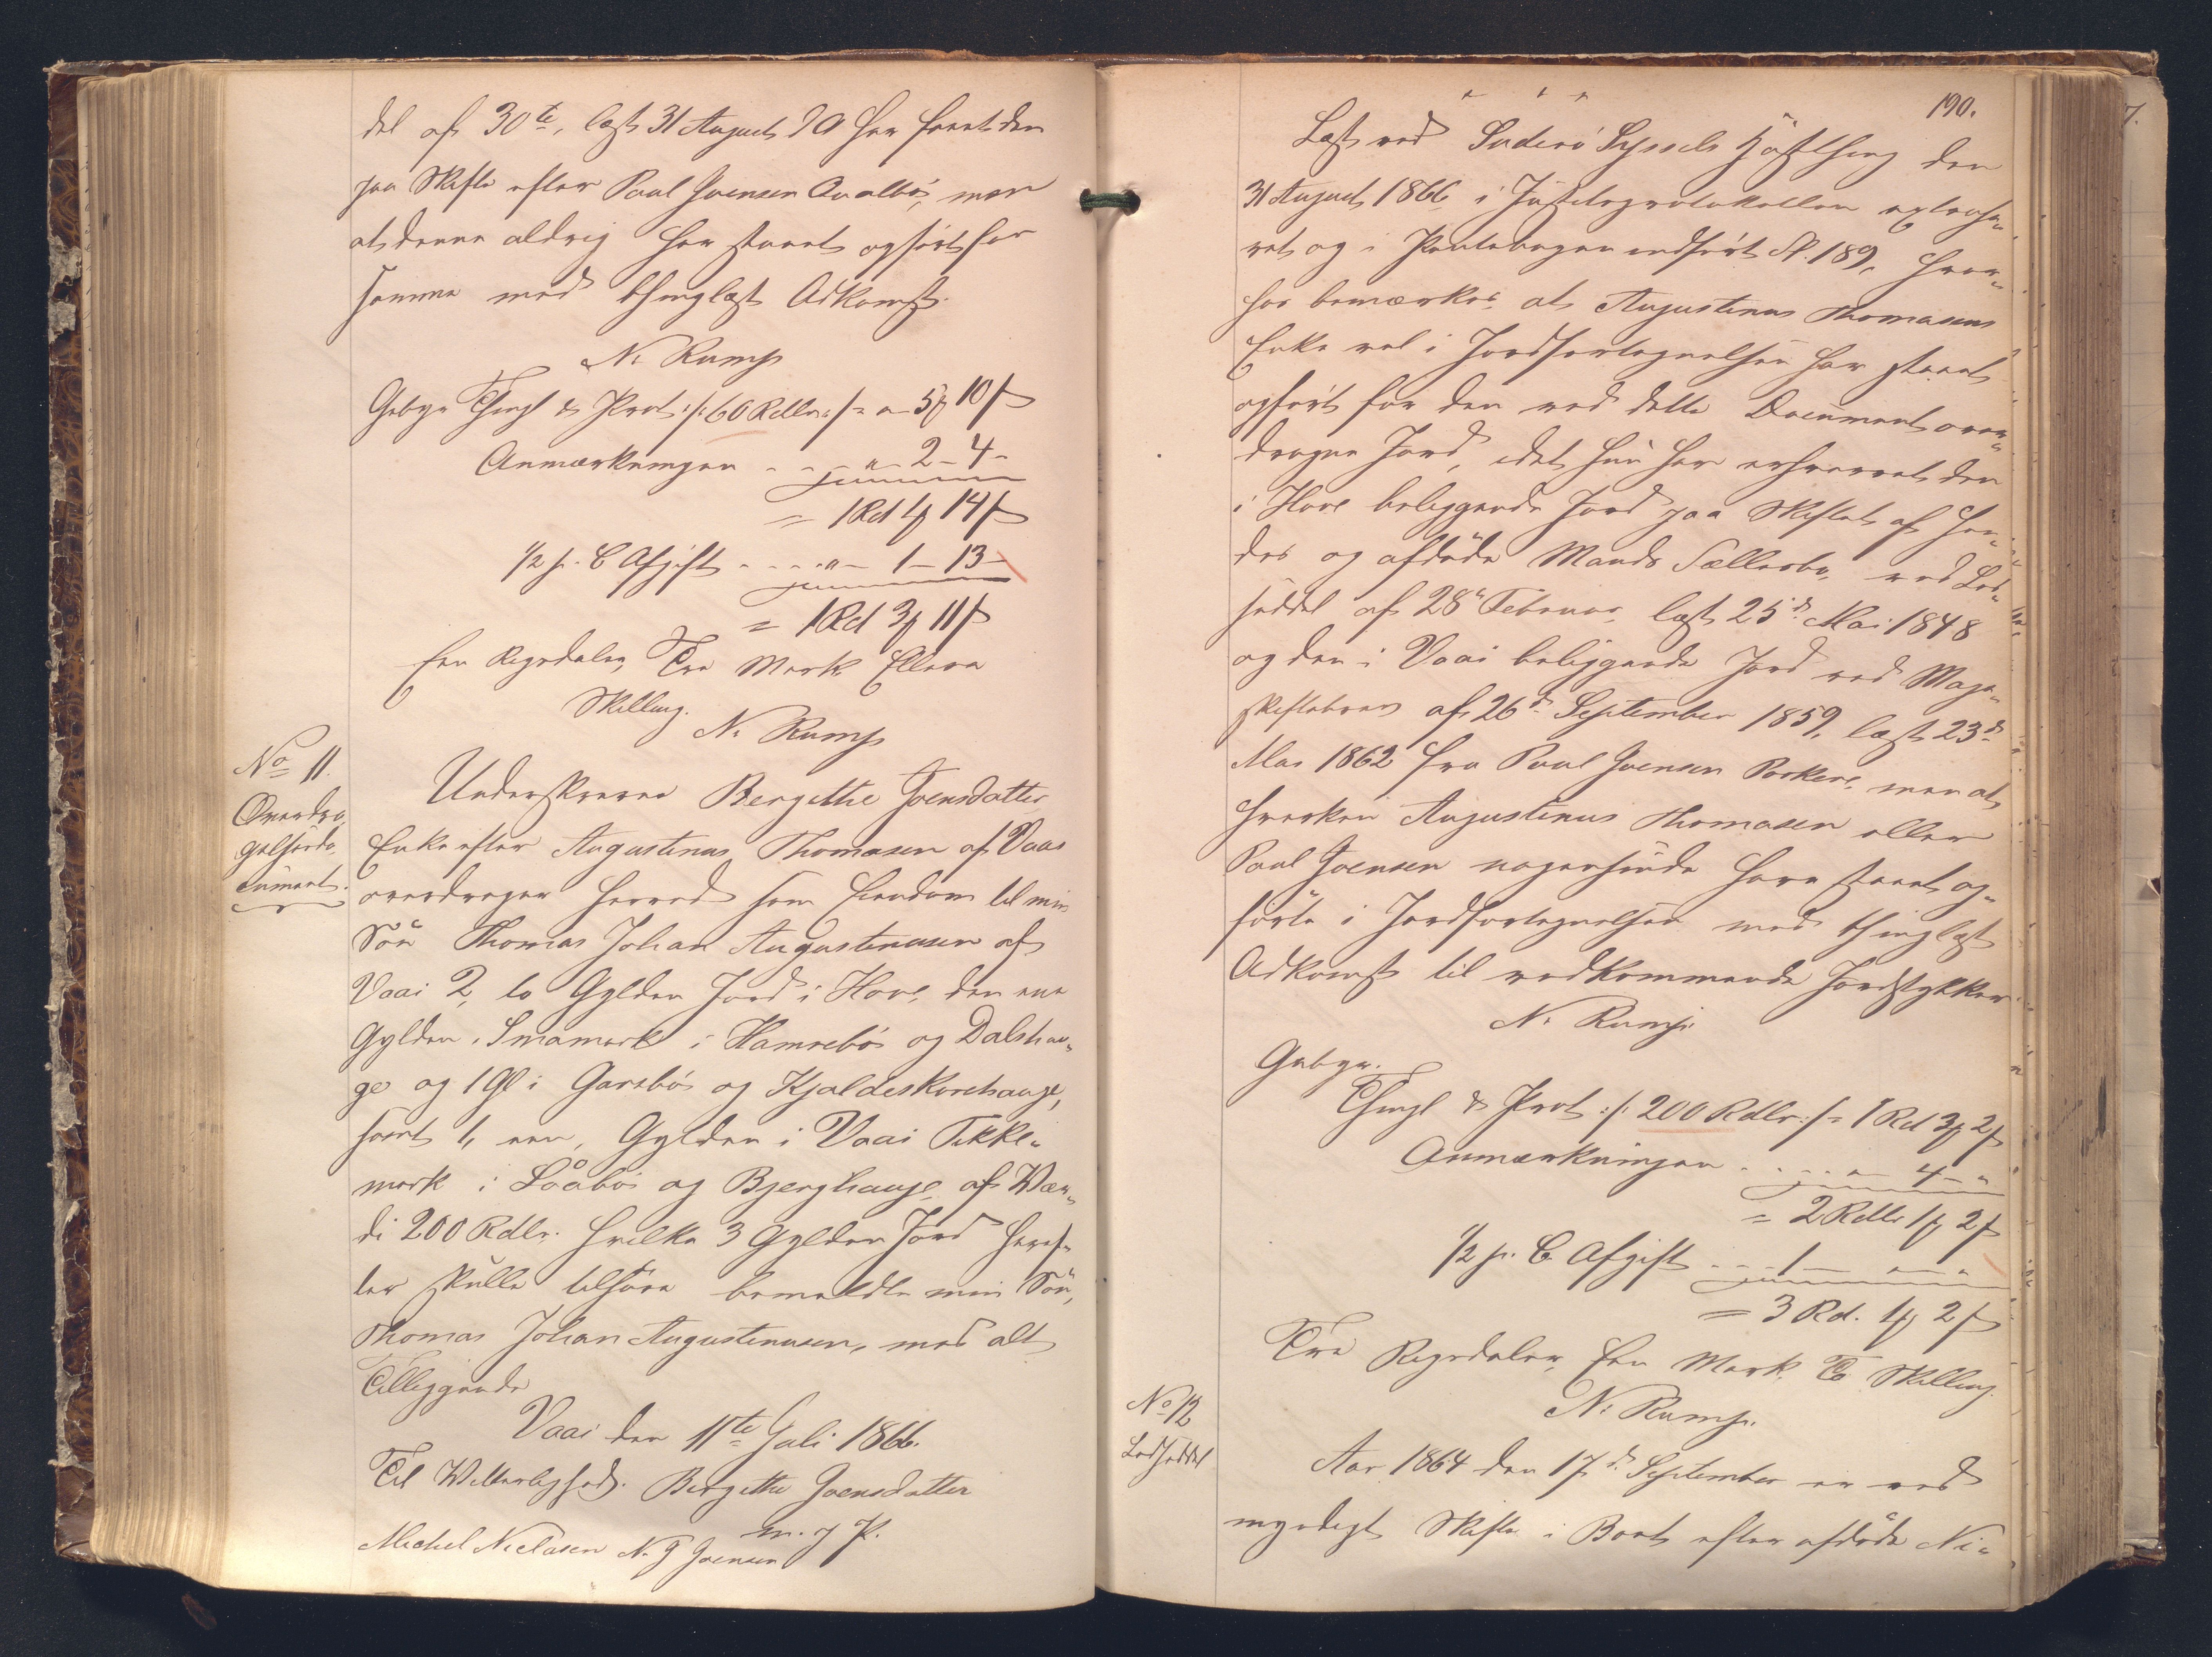 del af 30te, læst 31 August D A har faaet den
paa Skifte efter Poul Joensen Qvalbø, men
at denne aldrig har staaet opført for
samme med thinglæst Adkomst.
N. Rump
Gebyr Thingl & Prot :/: 60 Rdlr :/: = " - 5 $ 10 ß
Anmærkningen - - - " - 2 - 4 -
= 1 Rd 1 $ 14 ß
1/2 p. C Afgift - - - - " - 1 - 13 -
= 1 Rd 3 $ 11 ß
Een Rigsdaler, Tre Mark Elleve
Skilling.
N. Rump
No 11.
Overdra-
gelsesdo-
cument.
Underskrevne Bergithe Joensdatter
Enke efter Augustinus Thomasen af Vaai
overdrager herved som Eiendom til min
Søn Thomas Johan Augustinusen af
Vaai 2, to Gylden Jord i Hove, den ene
Gylden i Smamark i Hamrebø og Dalshau-
ge og 1 Gl i Garsbø og Kjaldeskorehauge,
samt 1, een, Gylden i Vaai Tikke-
mark i Låabø og Bjerghauge, af Vær-
di 200 Rdlr. hvilke 3 Gylden Jord heref-
ter skulle tilhøre bemeldte min Søn,
Thomas Johan Augustinusen, med alt
Tilliggende
Vaai den 11te Juli 1866.
Til Vitterlighed. Birgithe Joensdatter
m. f. P.
Michel Niclasen N. J Joensen
190.
Læst ved Suderø Syssels Høstthing den
31 August 1866 i Justitsprotokollen extrahe-
ret og i Pantebogen indført S. 189, hvor-
hos bemærkes, at Augustinus Thomasens
Enke vel i Jordfortegnelsen har staaet
opført for den ved dette Document over-
dragne Jord, idet hun har erhvervet den
i Hove beliggende Jord paa Skiftet af hen-
des og afdøde Mands Fællesbo, ved Lod-
seddel af 28 Februar, læst 25d Mai 1848
og den i Vaai beliggende Jord ved Mage-
skiftebrev af 26d September 1859, læst 23d
Mai 1862 fra Poul Joensen Porkere, men at
hverken Augustinus Thomasen eller
Poul Joensen nogensinde have staaet op-
førte i Jordfortegnelsen med thinglæst
Adkomst til vedkommende Jordstykker.
N. Rump.
Gebyr.
Thingl & Prot :/: 200 Rdlr :/: = 1 Rd 3 $ 2 ß
Anmærkningen - - - - " - 4 - "
= 2 Rdlr 1 $ 2 ß
1/2 p. C. Afgift - - - 1 - " - "
= 3 Rd. 1 $ 2 ß
Tre Rigsdaler, Een Mark, To Skilling.
N. Rump.
No 12
Lodseddel
Aar 1864 den 17d September er ved
myndigt Skifte i Boet efter afdøde Ni-